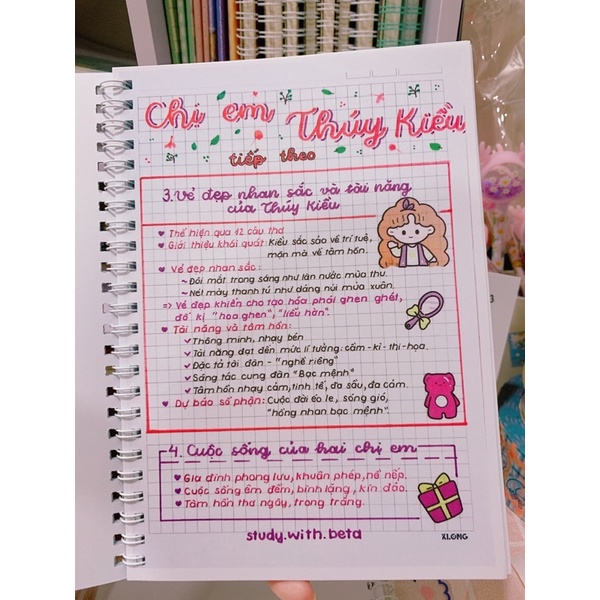 Chị em Thúy Kiều
tiếp theo
3. Vẻ đẹp nhan sắc và tài năng
của Thúy Kiều
Thể hiện qua 12 câu thơ
Giới thiệu khái quát: Kiều sắc sảo về trí tuệ,
mặn mà về tâm hồn.
Vẻ đẹp nhan sắc:
~ Đôi mắt trong sáng như làn nước mùa thu.
~ Nét mày thanh tú như dáng núi mùa xuân.
=> Vẻ đẹp khiến cho tạo hóa phải ghen ghét,
đố kị "hoa ghen", "liễu hờn".
Tài năng và tâm hồn:
Thông minh, nhạy bén
Tài năng đạt đến mức lí tưởng: cầm - kì - thi - họa.
Đặc tả tài đàn - "nghề riêng"
Sáng tác cung đàn "Bạc mệnh"
Tâm hồn nhạy cảm, tinh tế, đa sầu, đa cảm.
Dự báo số phận: Cuộc đời éo le, sóng gió,
"hồng nhan bạc mệnh".
4. Cuộc sống của hai chị em
Gia đình phong lưu, khuôn phép, nề nếp.
Cuộc sống êm đềm, bình lặng, kín đáo.
Tâm hồn thơ ngây, trong trắng.
study.with.beta
KLONG